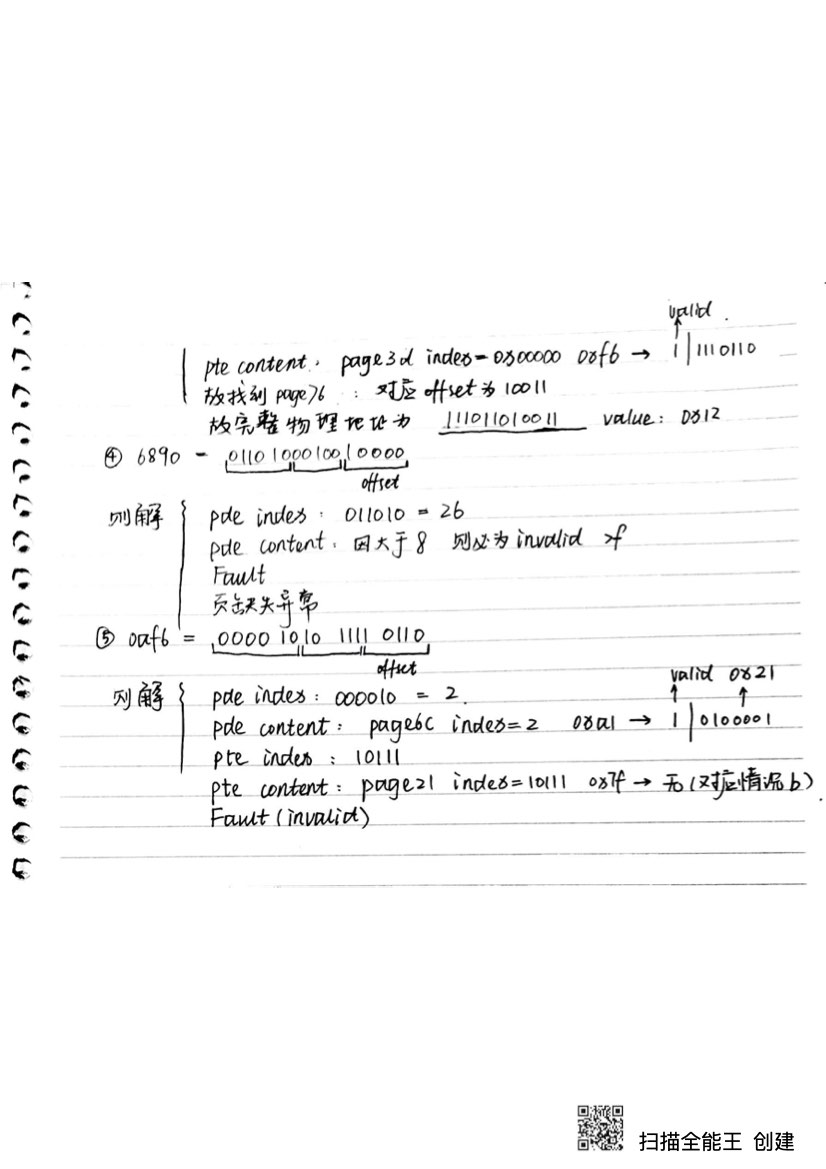 valid
pte content: page3d index=0x00000 0xf6 → 1 | 1110110
故找到 page76 : 对应 offset 为 10011
故完整物理地址为 111011010011 value: 0x12
④ 6890 = 0110 1000 100 1 0000
offset
则解
pde index : 011010 = 26
pde content: 因大于8 则必为 invalid
Fault
页缺失异常
⑤ 0af6 = 0000 1010 1111 0110
offset
valid 0x21
则解
pde index : 000010 = 2.
pde content : page6c index=2 0xa1 → 1 | 0100001
pte index : 10111
pte content : page21 index=10111 0x7f → 无(对应情况b)
Fault (invalid)
扫描全能王 创建